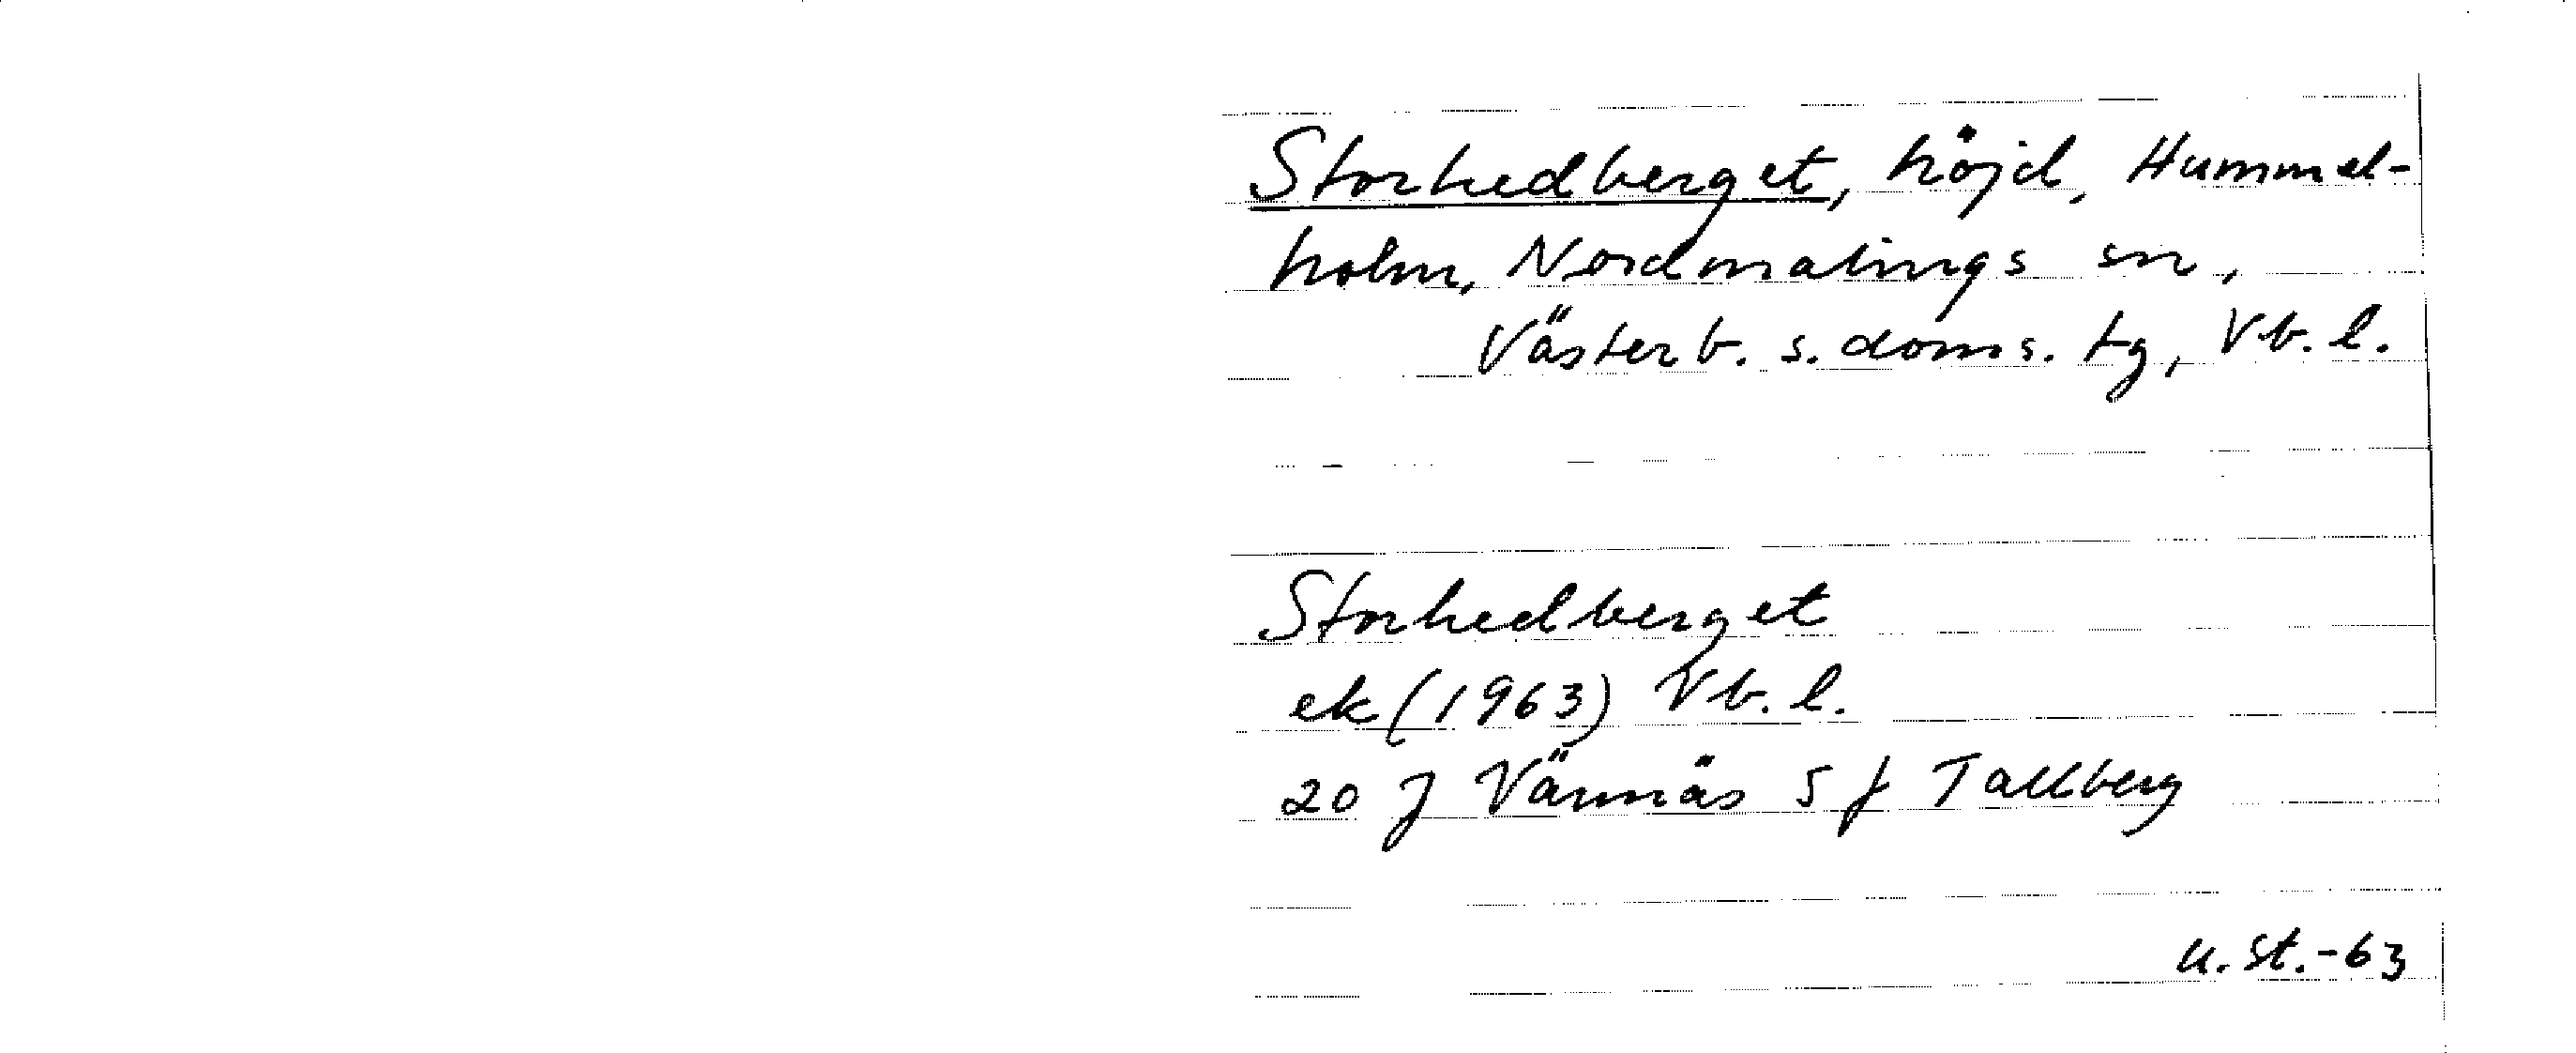 Storhedberget, höjd, Hummel-
holm, Nordmalings sn,
Västerb. s. doms. tg, Vb. l.
Storhedberget
ek (1963) Vb. l.
20 J Vännäs 5 f Tallberg
U. St. -63